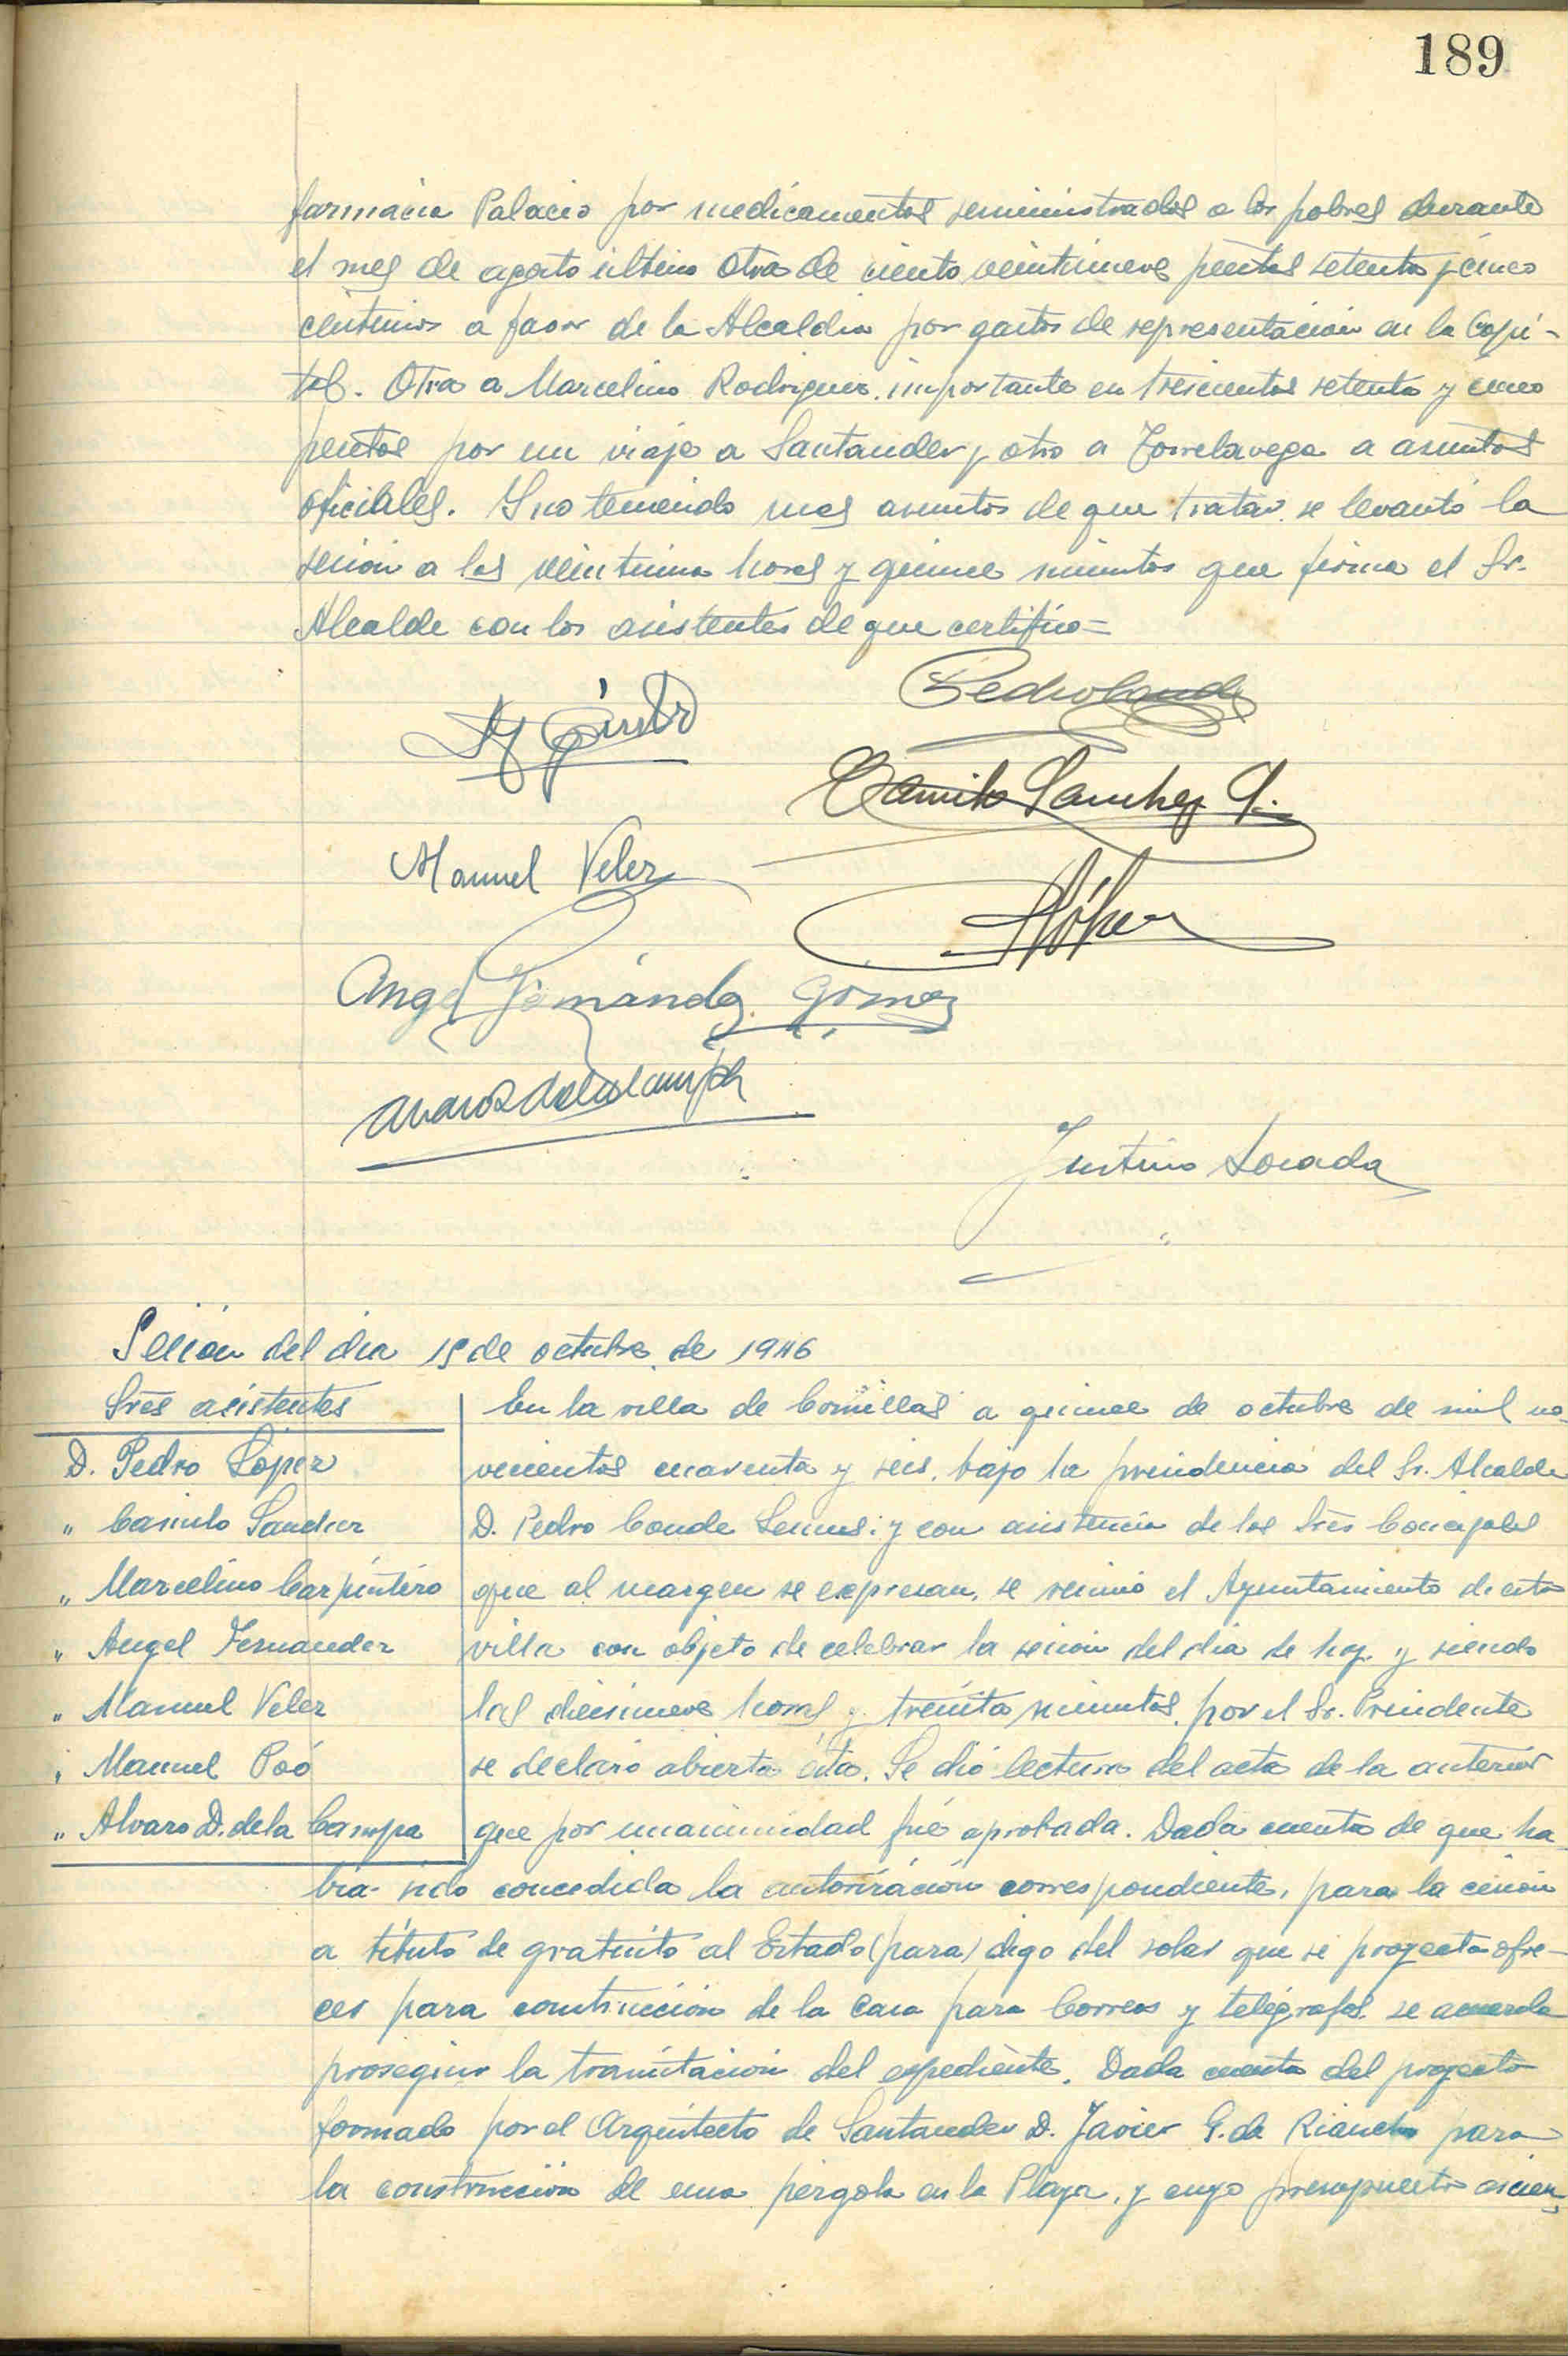 189
farmacia Palacio por medicamentos suministrados a los pobres durante
el mes de agosto último Otra de ciento veintinueve pesetas setenta y cinco
centimos a favor de la Alcaldia por gastos de representación en la Capi-
tal. Otra a Marcelino Rodriguez importante en trescientas setenta y cinco
pesetas por un viaje a Santander y otro a Torrelavega a asuntos
oficiales. Y no teniendo mas asuntos de que tratar se levantó la
sesion a las veintiuna horas y quince minutos que firma el Sr.
Alcalde con los asistentes de que certifico=
Pedro Conde
Camilo Sanchez
Manuel Velez
PLópez
Angel Fernández Gómez
Alvaro D de la Campa
Justino Losada
Sesión del dia 15 de octubre de 1946
Sres asistentes
D. Pedro López
" Camilo Sanchez
" Marcelino Carpintero
" Angel Fernandez
" Manuel Velez
" Manuel Poó
" Alvaro D. de la Campa
En la villa de Comillas a quince de octubre de mil no-
vecientos cuarenta y seis, bajo la presidencia del Sr. Alcalde
D. Pedro Conde Lemus: y con asistencia de los Sres Concejales
que al margen se expresan, se reunió el Ayuntamiento de esta
villa con objeto de celebrar la sesion del dia de hoy. y siendo
las diecinueve horas y treinta minutos, por el Sr. Presidente
se declaró abierta ésta. Se dió lectura del acta de la anterior
que por unanimidad fué aprobada. Dada cuenta de que ha-
bia sido concedida la autorización correspondiente, para la cesion
a titulo de gratuito al Estado (para) digo del solar que se proyecta ofre-
cer para construcción de la Casa para Correos y telégrafos. se acuerda
proseguir la tramitacion del expediente. Dada cuenta del proyecto
formado por el Arquitecto de Santander D. Javier G. de Riancho para
la construcción de una pérgola en la Playa, y cuyo presupuesto ascien-